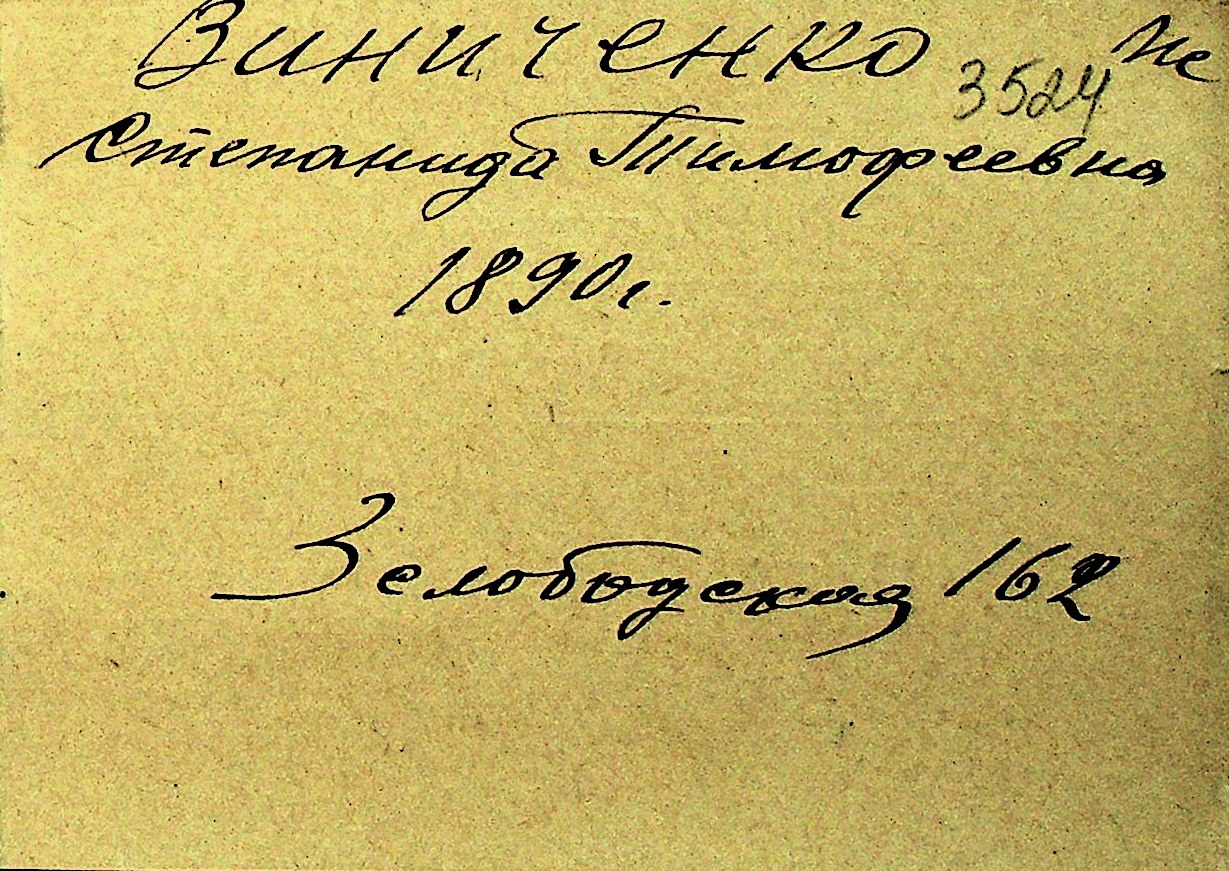 Виниченко Не
3524
Степанида Тимофеевна
1890 г.
162